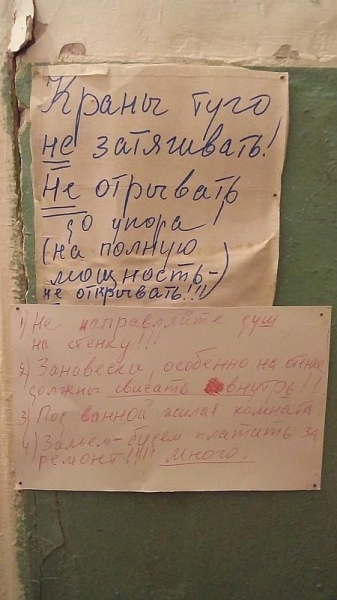 Краны туго
не затягивать!
Не отрывать
до упора
(на полную
мощность-)
не открывать!!!
1) Не направляйте душ
на стенку!!!
2) Занавески, особенно на стене
должны свисать внутрь!!
3) Под ванной жилая комната
4) Зальём-будем платить за
ремонт!!!! много.